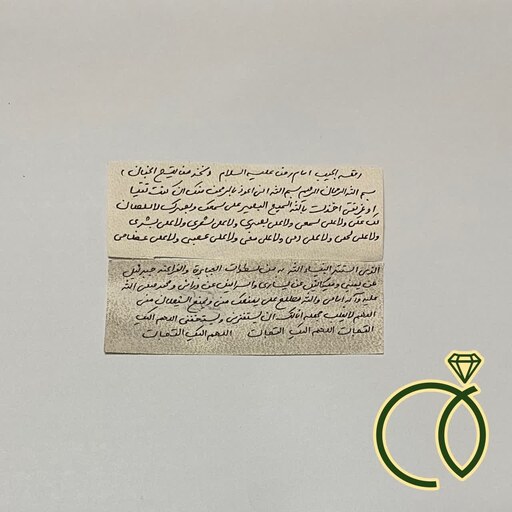 رقعة الجيب امام رضا عليه السلام
بسم الله الرحمان الرحيم بسم الله انى اعوذ بالرحمن منك ان كنت تقيا
او غير تقى اخذت بالله السميع البصير على سمعك وبصرك لا سلطان
لك على ولا على سمعى ولا على بصرى ولا على شعرى ولا على بشرى
ولا على لحمى ولا على دمى ولا على مخى ولا على عصبى ولا على عظامى
به من سطوات الجبابرة والفراعنة جبرئيل
عن يمينى وميكائيل عن يسارى واسرافيل عن ورائى ومحمد صلى الله
عليه وآله امامى والله مطلع على يمنعك منى ويمنع الشيطان منى
اللهم لا يغلب جهله اناتك ان يستفزنى ويستخفنى اللهم اليك
التجات اللهم اليك التجات اللهم اليك التجات